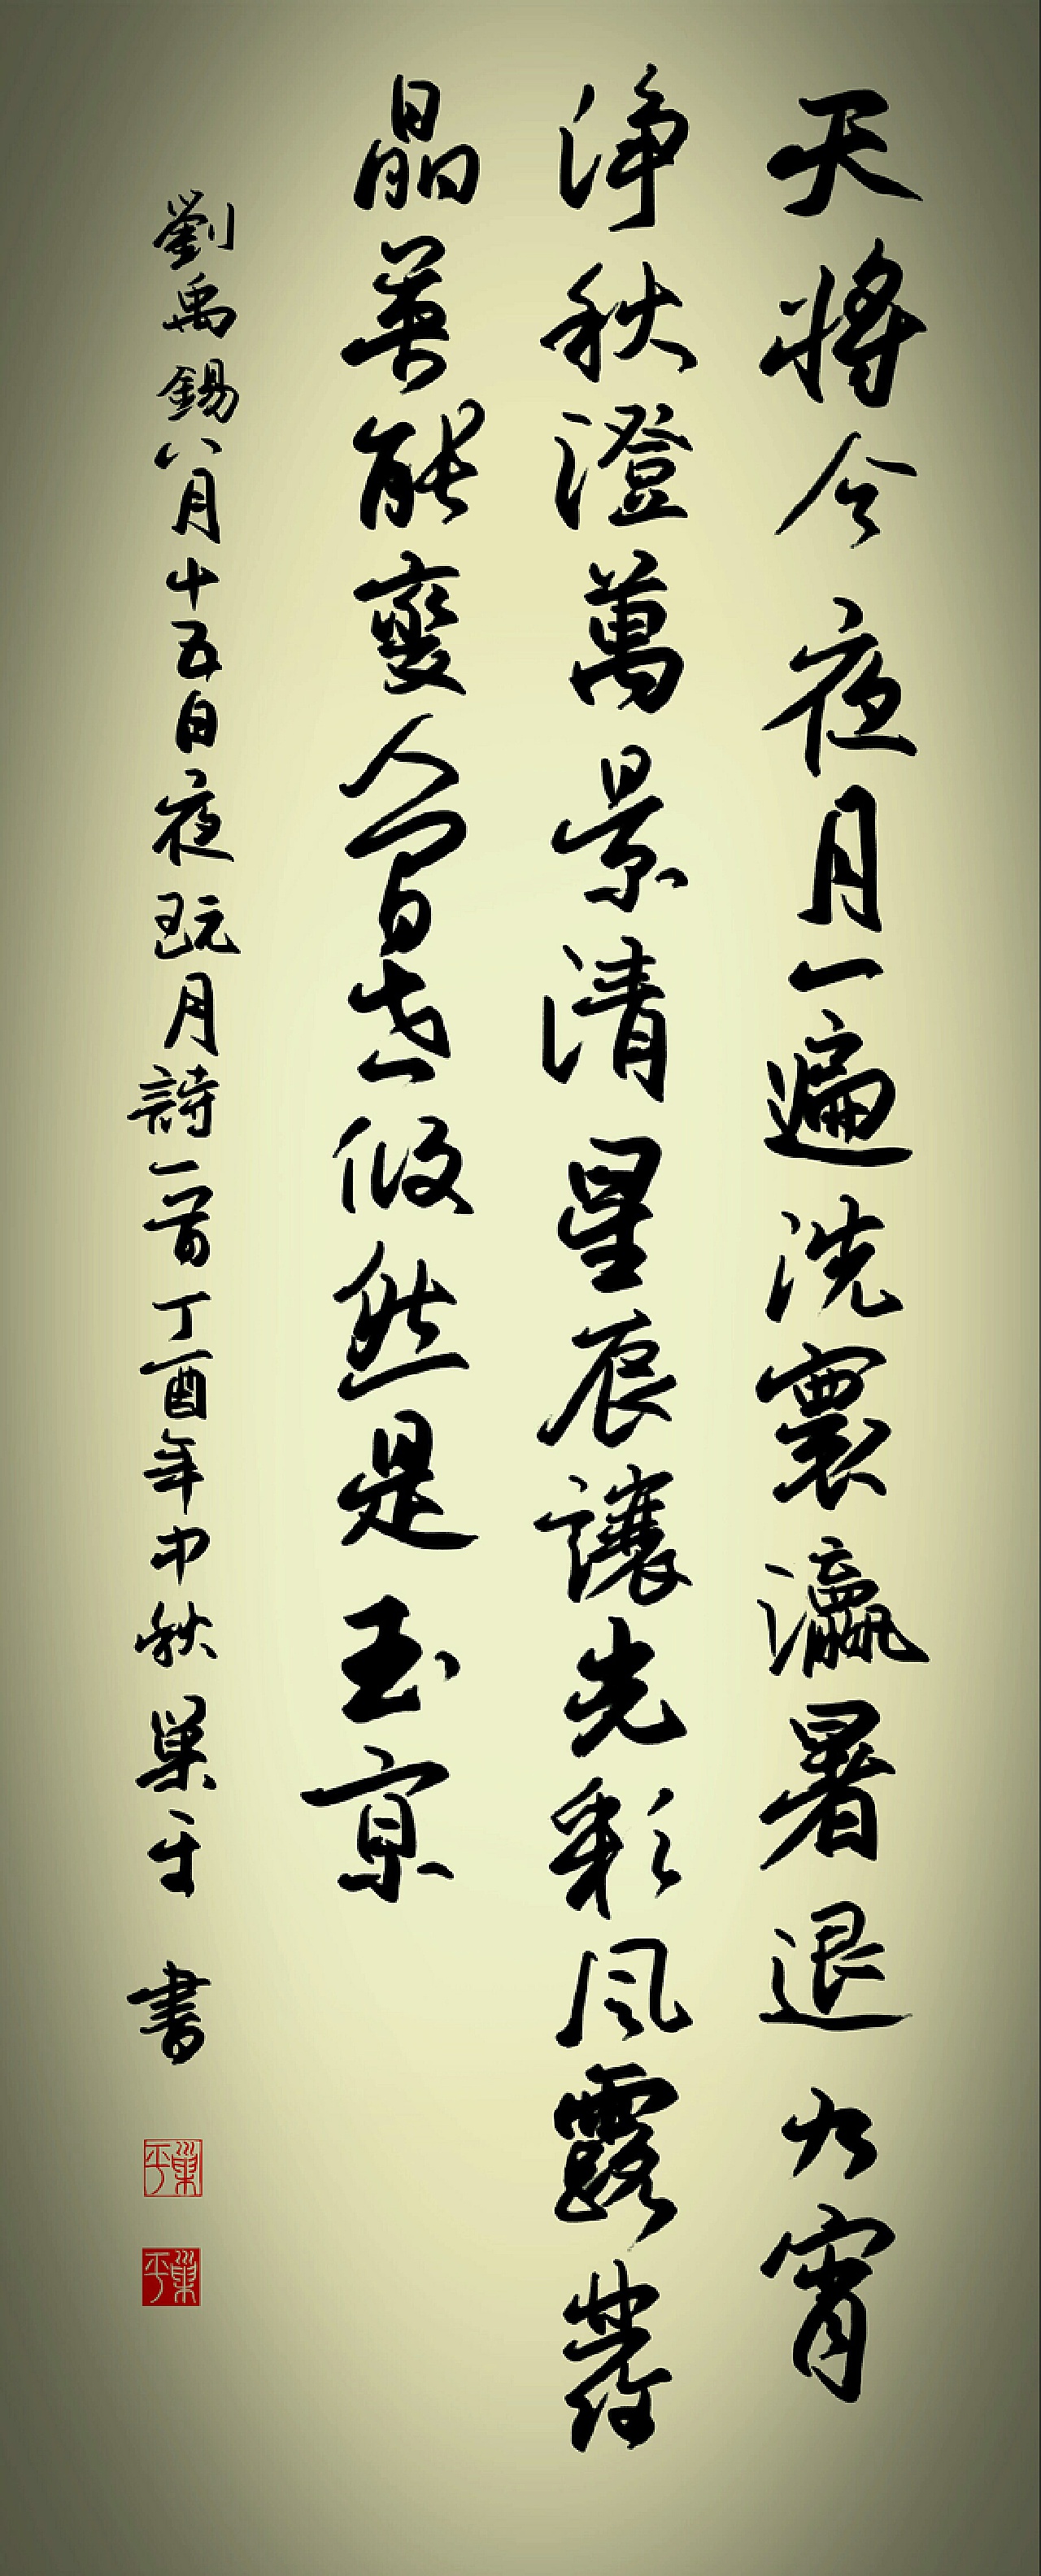 天將今夜月一遍洗寰瀛暑退九宵
淨秋澄萬景清星辰讓光彩風露發
晶英能變人間世攸然是玉京
劉禹錫八月十五日夜玩月詩一首丁酉年中秋巢平書
巢平
巢平